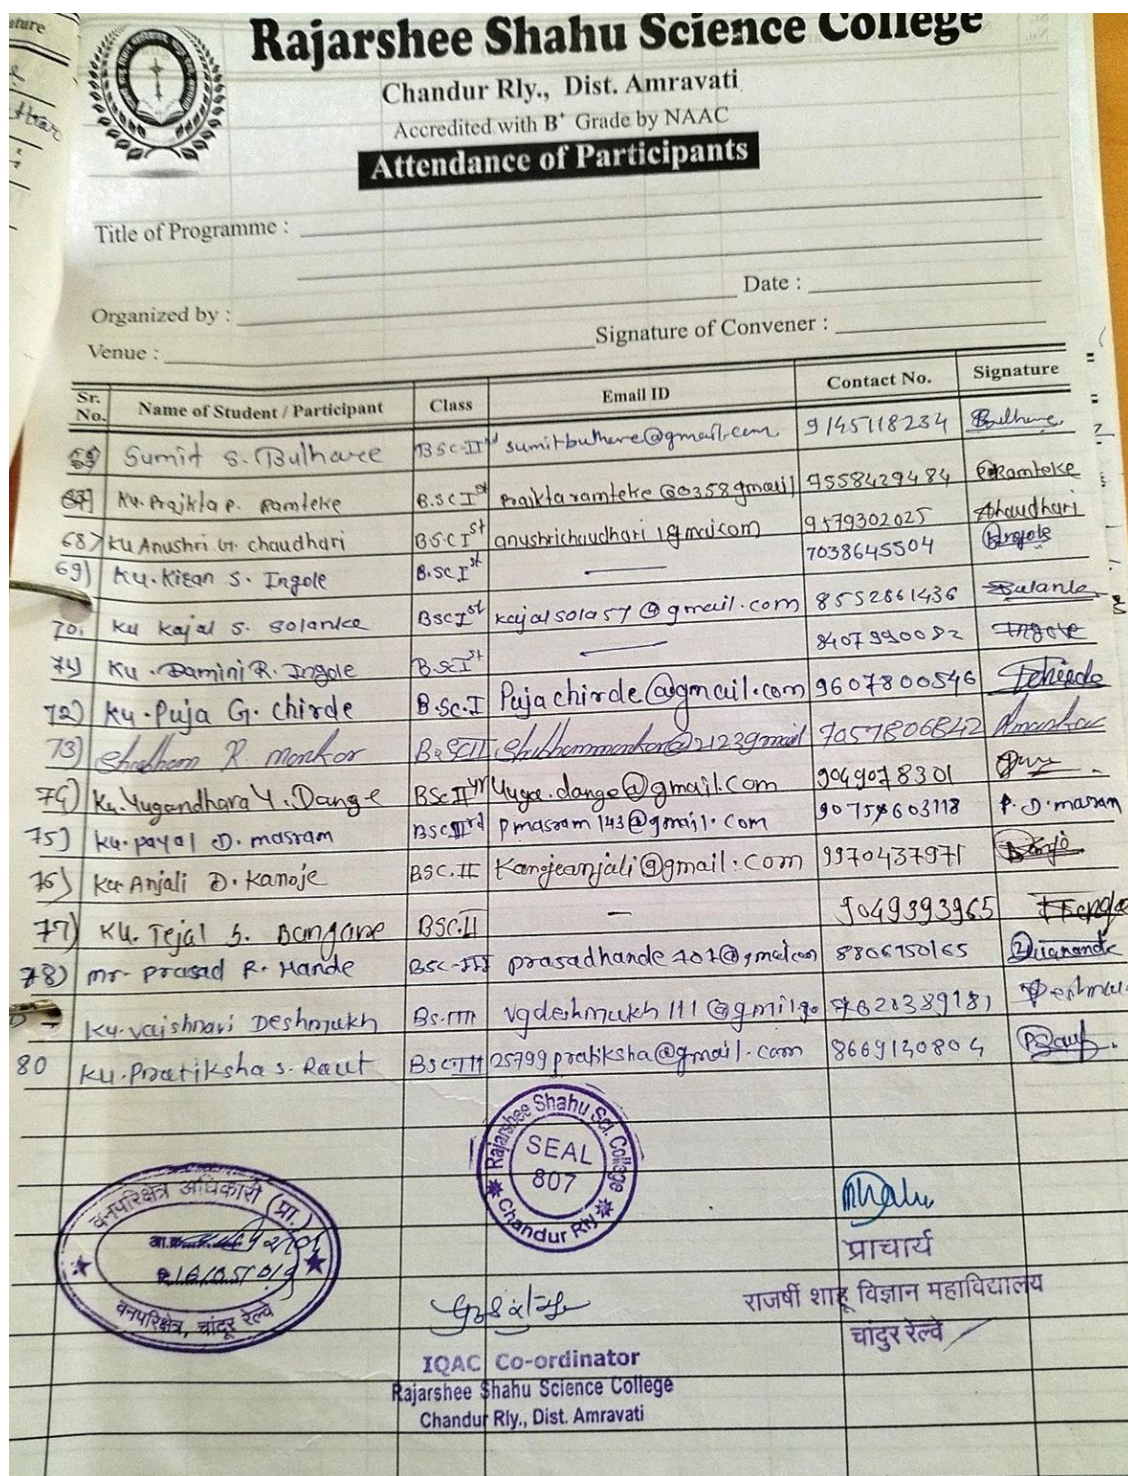 Rajarshee Shahu Science College
Chandur Rly., Dist. Amravati
Accredited with B+ Grade by NAAC
Attendance of Participants
Title of Programme :
Date :
Organized by :
Signature of Convener :
Venue :
Sr. No. Name of Student / Participant Class Email ID Contact No. Signature
Sumit S. Bulharee BSC-III sumitbulhare@gmail.com 9145118234 Bulhare
67) Ku. Prajkta P. Ramteke B.SC Ist prajktaramteke@0358gmail 7558429484 PRamteke
68) Ku Anushri G. Chaudhari B.SC Ist anushrichaudhari1gmai.com 9579302025 Ahaudhari
69) Ku. Kiran S. Ingole B.SC Ist — 7038645504
70. Ku Kajal S. Solanke BSC Ist kajalsola57@gmail.com 8552861436
71) Ku. Damini R. Ingole B.SC Ist — 8407990082 Ingole
72) Ku. Puja G. Chirde B.Sc.I Pujachirde@gmail.com 9607800546
73) Shubham R Mankar B.SC III Shubhammankar@2123gmail 7057806842
74) Ku. Yugandhara Y. Dange BSC II yr Yuga.dange@gmail.com 9049078301
75) Ku. Payal D. masram BSC IIIrd Pmasram143@gmail.com P. D. masram
76) Ku Anjali D. Kanoje BSC.II Kanojeanjali@gmail.com 9970437971
77) Ku. Tejal S. Bangane BSC.II — 9049393965
78) mr. Prasad R. Hande BSC-III prasadhande707@gmailcom 8806750165
Ku. Vaishnavi Deshmukh BS.III vgdeshmukh111@gmil 7620389181
80 Ku. Pratiksha S. Raut BSC.III 25799pratiksha@gmail.com 8669140804 PRaut
Rajarshee Shahu Sci. College
SEAL
807
Chandur Rly
वनपरिक्षेत्र अधिकारी (प्रा.)
वनपरिक्षेत्र, चांदूर रेल्वे
प्राचार्य
राजर्षी शाहू विज्ञान महाविद्यालय
चांदुर रेल्वे
IQAC Co-ordinator
Rajarshee Shahu Science College
Chandur Rly., Dist. Amravati